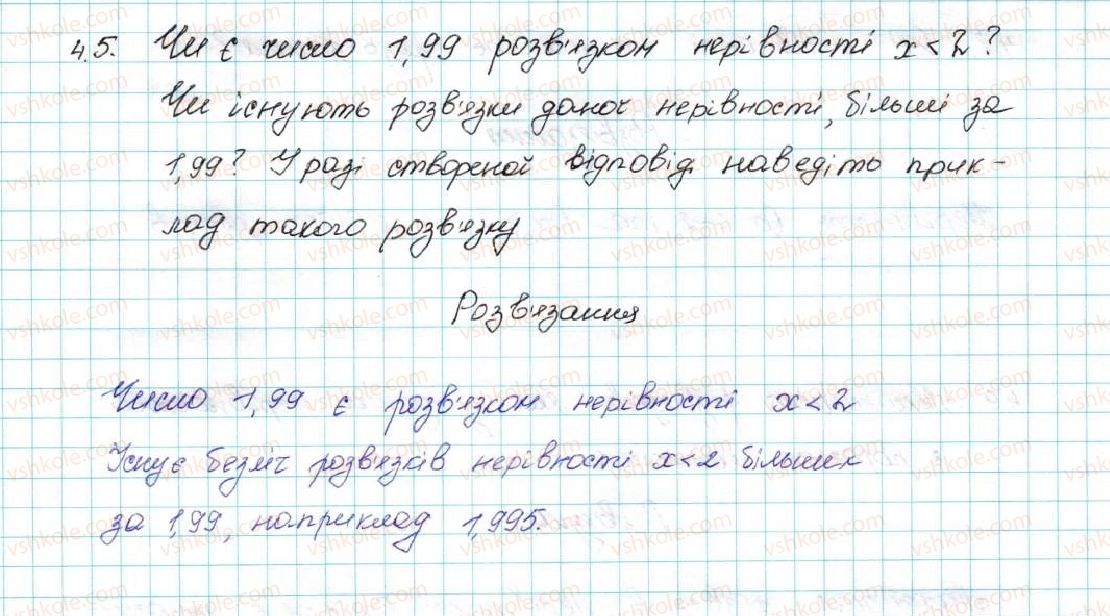 4.5. Чи є число 1,99 розв'язком нерівності x < 2?
Чи існують розв'язки даної нерівності, більші за
1,99? У разі створеной відповіді наведіть прик-
лад такого розв'язку
Розв'язання
Число 1,99 є розв'язком нерівності x < 2
Існує безліч розв'язків нерівності x < 2 більших
за 1,99, наприклад 1,995.